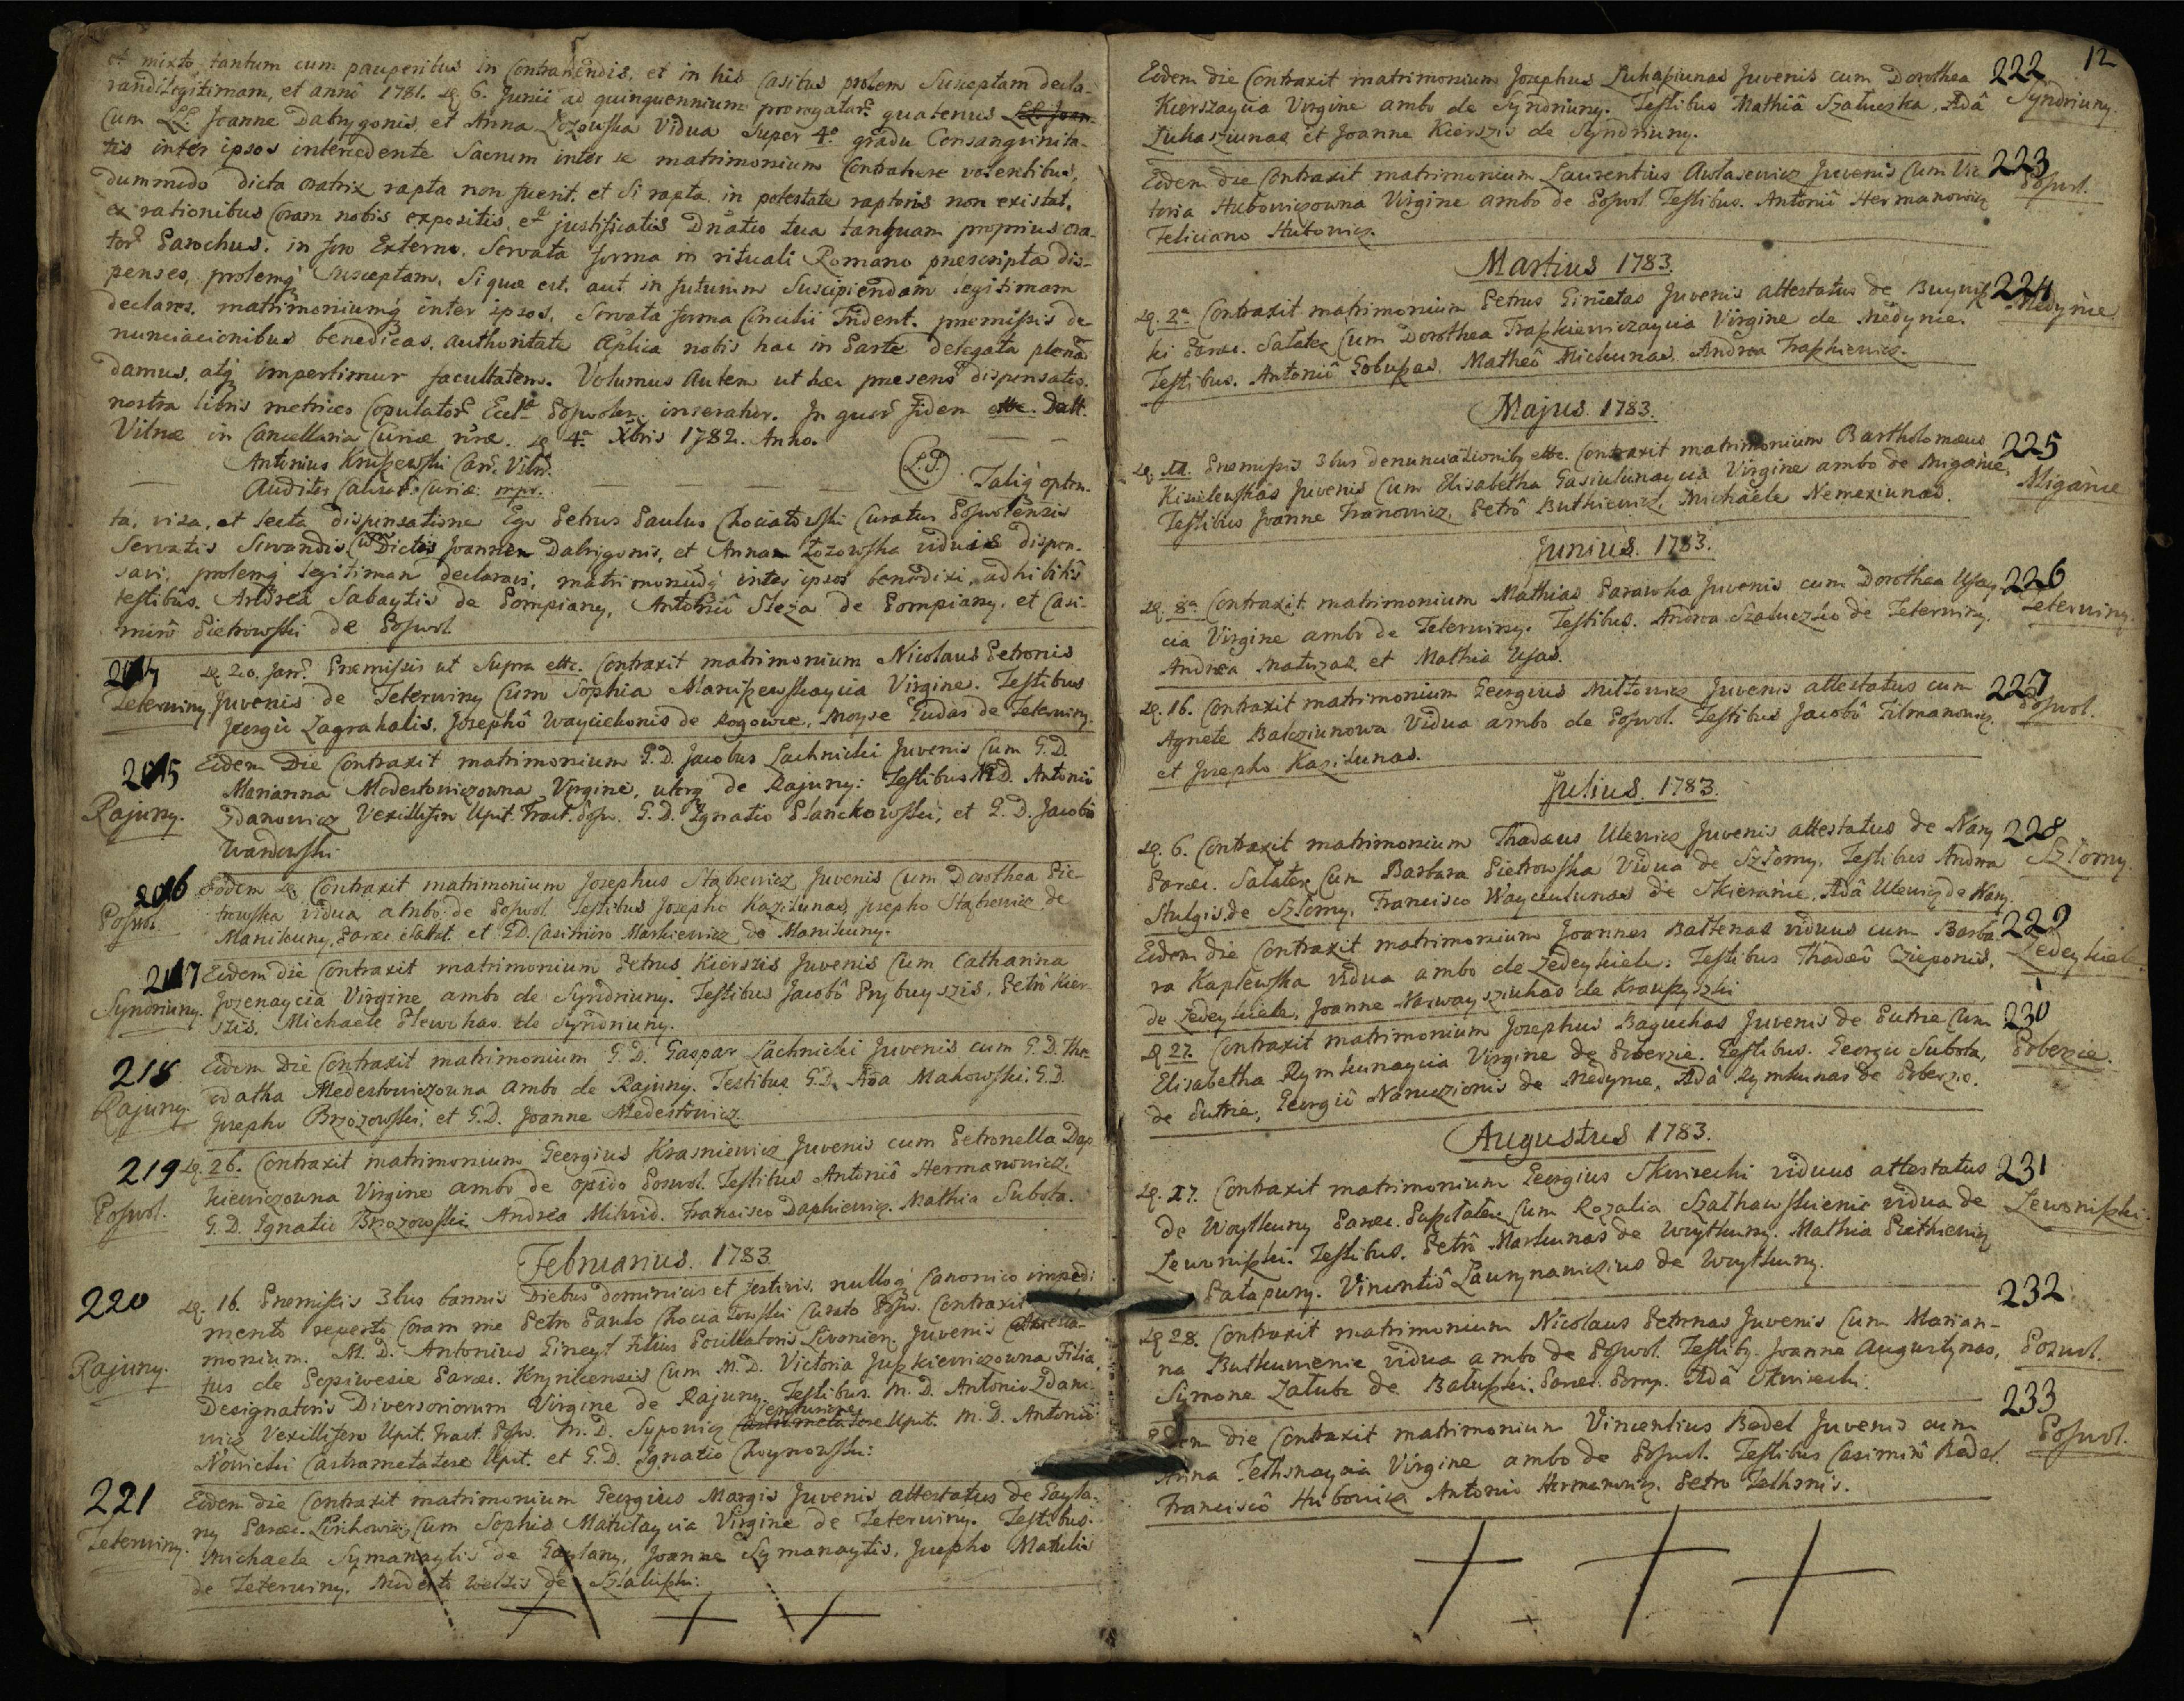 et mixto tantum cum pauperibus in Contrahendis, et in his Casibus prolem Susceptam decla-
randi Legitimam, et anno 1781. 6. Junii ad quinquennium prorogatar. quatenus
Cum LL. Joanne Dabrygonis, et Anna Łozowska Vidua Super 4º gradu Consanguinita-
tis inter ipsos intercedente Sacrum inter se matrimonium Contrahere volentibus,
dummodo dicta oratrix rapta non fuerit, et Si rapta in potestate raptoris non existat,
ex rationibus Coram nobis expositis et justificatis Dnatio tua tanquam proprius ora-
tor. Parochus, in foro Externo, Servata forma in rituali Romano praescripta dis-
penses, prolemq Susceptam, Si quae est, aut in futurum Suscipiendam legitimam
declares, matrimoniumq inter ipsos, Servata forma Concilii Trident. praemissis de-
nunciacionibus benedicas, authoritate Aplica nobis hac in Parte delegata plenam
damus, atq impertimur facultatem. Volumus Autem ut haec praesens dispensatio
nostra libris metrices Copulator. Eccl. Poswolen. inseratur. In quor. fidem etc. Datt.
Vilnae in Cancellaria Curiae nrae. 4ª Xbris 1782. Anno.
Antonius Kruszewski Can. Viln.
Auditor Causar. Curiae mpr.
(L.S) Taliq obten-
ta, visa, et lecta dispensatione Ego Petrus Paulus Chociatowski Curatus Poswolensis
Servatis Servandis, Cum Dictis Joannem Dabrigonis, et Annam Łozowska viduis dispen-
savi, prolemq legitimam declaravi, matrimoniumq inter ipsos benedixi, adhibitis
testibus. Andrea Sabaytis de Pompiany, Antonio Steza de Pompiany, et Casi-
miro Pietrowski de Poswol.
214
Teterwiny
20. Janr. Praemissis ut Supra etc. Contraxit matrimonium Nicolaus Petronis
Juvenis de Teterwiny Cum Sophia Maniszewskaycia Virgine. Testibus
Georgio Zagrakalis, Josepho Wayciekonis de Rogowie, Moyse Gudas de Teterwiny.
215
Rajuny.
Eidem Die Contraxit matrimonium G.D. Jacobus Lachnicki Juvenis Cum G.D.
Marianna Modestowiczowna Virgine, utorq de Rajuny: Testibus M.D. Antonio
Zdanowicz Vexillifero Upit. Tract. Posw. G.D. Ignatio Slanckowski, et G.D. Jacobo
Wandowski
216
Poswol.
Eodem Contraxit matrimonium Josephus Stąbrewicz Juvenis Cum Dorothea Pie-
trowska vidua ambo de Poswol Testibus Josepho Kazikunas, Josepho Stąbrewicz de
Manikuny, Paroc. Salat. et G.D. Casimiro Markiewicz de Manikuny.
217
Syndriuny.
Eidem die Contraxit matrimonium Petrus Kierszis Juvenis Cum Catharina
Jozenaycia Virgine ambo de Syndriuny. Testibus Jacobo Prybuyszis, Petro Kier-
szis, Michaele Plewokas de Syndriuny.
218
Rajuny.
Eidem Die Contraxit matrimonium G.D. Gaspar Lachnicki Juvenis cum G.D. The-
odatha Medestowiczowna ambo de Rajuny. Testibus G.D. Ada Makowski, G.D.
Josepho Brzozowski, et G.D. Joanne Medestowicz
219
Poswol.
26. Contraxit matrimonium Georgius Krasniewicz Juvenis cum Petronella Dap-
kiewiczowna Virgine ambo de opido Poswol. Testibus Antonio Hermanowicz,
G.D. Ignatio Brzozowski, Andrea Mikwid, Francisco Dapkiewicz, Mathia Subota.
Februarius. 1783
220
Rajuny.
16. Praemissis 3bus bannis Diebus dominicis et festivis, nulloq Canonico impedi-
mento reperto Coram me Petro Paulo Chociatowski Curato Posw. Contraxit matri-
monium. M.D. Antonius Gineyt Filius Pocillatoris Livonien. Juvenis Attesta-
tus de Popiwesie Paroc. Krynicensis Cum M.D. Victoria Juszkiewiczowna, Filia
Designatoris Diversoriorum Virgine de Rajuny. Testibus. M.D. Antonio Zdano-
wicz Vexillifero Upit. Tract. Posw. M.D. Syponicz Centurione Upit. M.D. Antonio
Nowicki Castrametatore Upit. et G.D. Ignatio Choynowski:
221
Teterwiny.
Eidem die Contraxit matrimonium Georgius Margis Juvenis attestatus de Gayla-
ny Paroc. Linkowie, Cum Sophia Matulaycia Virgine de Teterwiny. Testibus
Michaele Symanaytis de Gaylany, Joanne Symanaytis, Josepho Matulis
de Teterwiny. Modesto Weltzis de Szaluszki.
12
Eodem die Contraxit matrimonium Josephus Lukaszunas Juvenis cum Dorothea
Kierszaycia Virgine ambo de Syndriuny. Testibus Mathia Szałuszka, Ada
Lukaszunas et Joanne Kierszis de Syndriuny.
222
Syndriuny.
Eodem die Contraxit matrimonium Laurentius Awlasewicz Juvenis Cum Vic-
toria Hubowiczowna Virgine ambo de Poswol Testibus. Antonio Hermanowicz
Feliciano Hubowicz.
223
Poswol.
Martius 1783.
2ª Contraxit matrimonium Petrus Ginietas Juvenis attestatus de Buywisz-
ki Paroc. Salatex Cum Dorothea Trapkiewiczaycia Virgine de Medynie.
Testibus. Antonio Gobuszas, Matheo Mickunas, Andrea Trapkiewicz.
224
Medynie
Majus. 1783.
Praemissis 3bus denunciationibq etc. Contraxit matrimonium Bartholomaeus
Kisielewskas Juvenis Cum Elisabetha Gasiulunaycia Virgine ambo de Miganie,
Testibus Joanne Franowicz, Petro Butkiewicz, Michaele Nemexiunas.
225
Miganie
Junius. 1783.
8ª Contraxit matrimonium Mathias Parawka Juvenis cum Dorothea Usay-
cia Virgine ambo de Teterwiny. Testibus. Andrea Szaluczio de Teterwiny,
Andrea Matuzas, et Mathia Usas.
226
Teterwiny.
16. Contraxit matrimonium Georgius Miltowicz Juvenis attestatus cum
Agnete Balcziunowa Vidua ambo de Poswol. Testibus Jacobo Tilmanowicz,
et Josepho Kazikunas.
227
Poswol.
Julius. 1783.
6. Contraxit matrimonium Thadaeus Ulewicz Juvenis attestatus de Nary
Paroc. Salatex Cum Barbara Pietrowska Vidua de Szłomy, Testibus Andrea
Stulgis de Szłomy, Francisco Wayciulunas de Skieranie, Ada Ulewicz de Nary.
228
Szłomy.
Eidem die Contraxit matrimonium Joannes Baltenas viduus cum Barba-
ra Kaplewska vidua ambo de Zedeykiele: Testibus Thadaeo Czieponis,
de Zedeykiele, Joanne Narwayszukas de Krauszyszki
229
Zedeykiele.
27. Contraxit matrimonium Josephus Baguckas Juvenis de Putrie Cum
Elisabetha Rymkunaycia Virgine de Berberzie. Testibus. Georgio Subota,
de Putrie, Georgio Naruszionis de Medynie, Ada Rymkunas de Berberzie.
230
Berberzie.
Augustus 1783.
27. Contraxit matrimonium Georgius Skwirecki viduus attestatus
de Woytkuny Paroc. Puszolatex Cum Rozalia Szatkawskienie vidua de
Lewoniszki. Testibus. Petro Markunas de Woytkuny. Mathia Pietkiewicz
Satapuny. Vincentio Laurynawiczius de Woytkuny.
231
Lewoniszki.
28. Contraxit matrimonium Nicolaus Petrenas Juvenis Cum Marian-
na Butkuwienie vidua ambo de Poswol. Testibq. Joanne Augustynas,
Symone Załuba de Bałuszki. Paroc. Pomp. Ada Skwirecki.
232
Poswol.
Eidem die Contraxit matrimonium Vincentius Bedel Juvenis cum
Anna Tethsnaycia Virgine ambo de Poswol. Testibus Casimiro Bedel,
Francisco Hubowicz Antonio Hermanowicz. Petro Tethsnis.
233
Poswol.